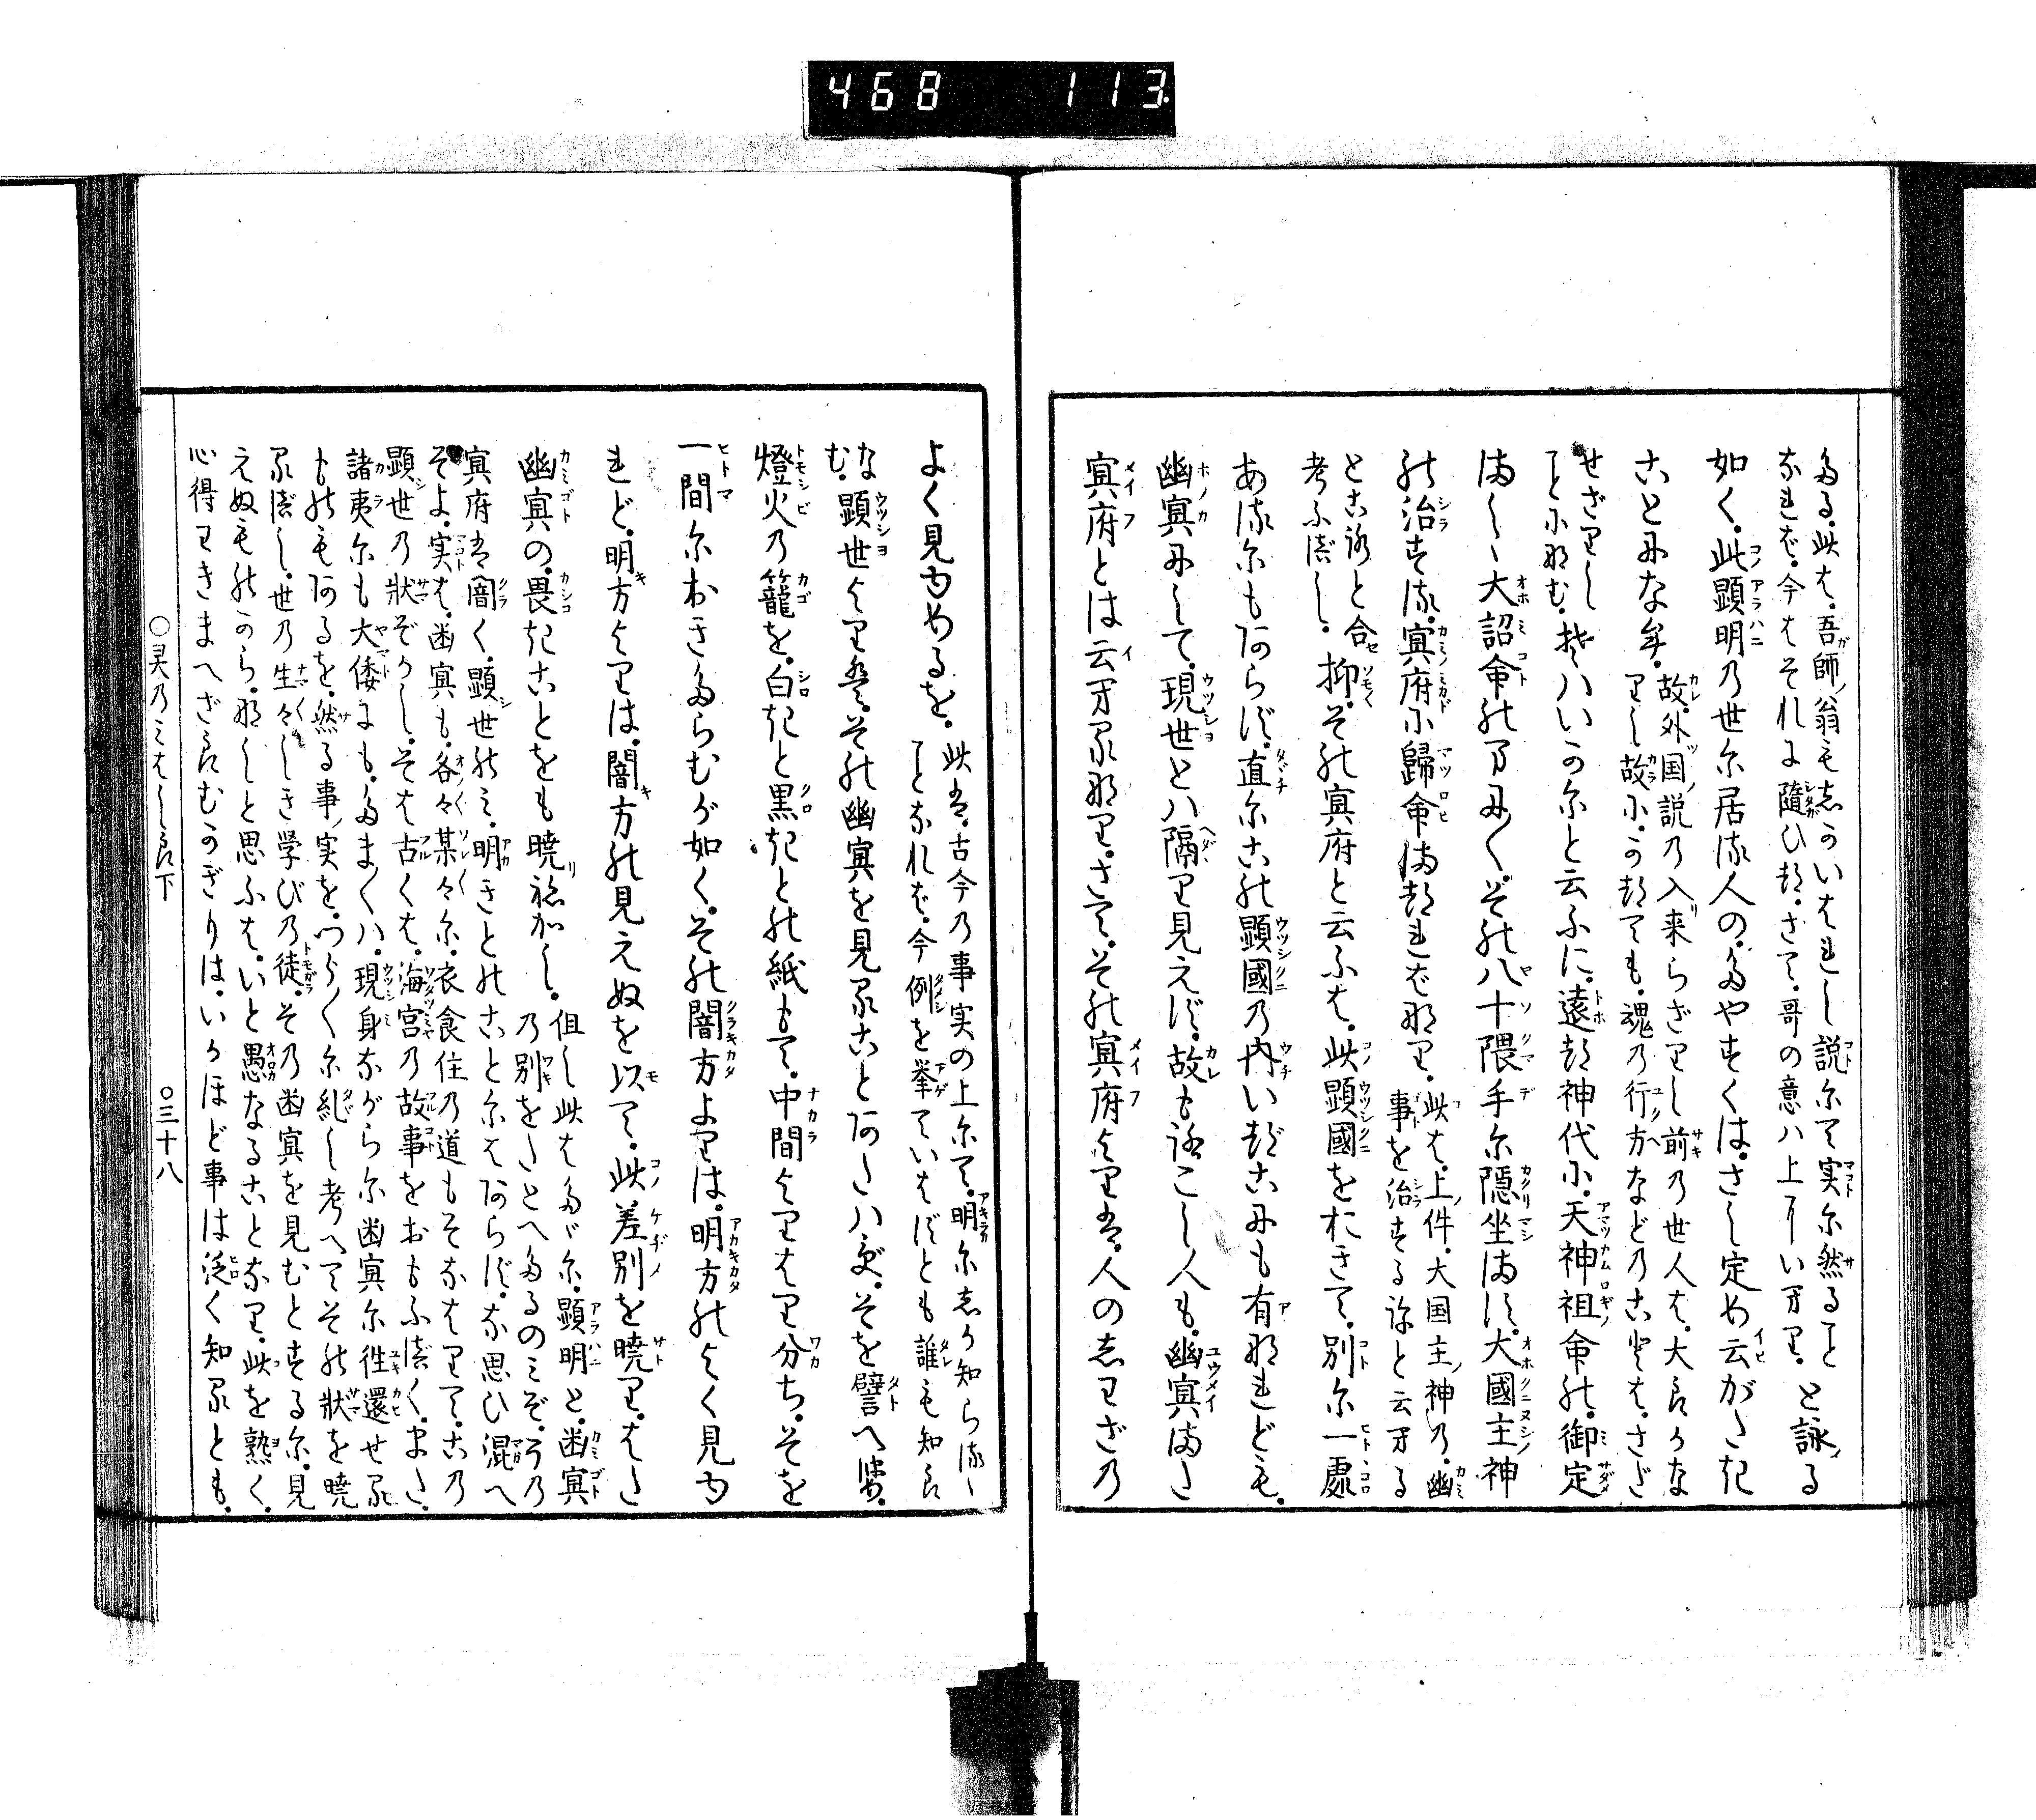 468 113
たる。此は。吾師翁もしかいはれし説にて実に然ること
なれば。今はそれに隨ひつ。さて。哥の意ハ上にいへり。と詠る
如く。此顕明の世に居る人の。たやすくは。さし定め云がたき
ことになむ。故。外国説の入来らざりし前の世人は。大らかな
りし故に。かつても。魂の行方などのことは。さだ
せざりし
ことになむ。抑ハいかにと云ふに。遠つ神代に。天神祖命の。御定
まし〱大詔命のまに〱。その八十隈手に隠坐ます。大國主神
の治する。冥府に歸命まつればなり。此は。上件。大国主神の。幽
事を治する神と云へる
ところと合せ
考ふべし。抑。その冥府と云ふは。此顕國をおきて。別に一處
あるにもあらず。直にこの顕國の内いづこにも有なれども。
幽冥にして。現世とハ隔り見えず。故もろこし人も。幽冥また
冥府とは云へるなり。さて。その冥府よりは。人のしわざの
よく見ゆめるを。此は。古今の事実の上にて。明にしか知らるゝ
ことなれば。今例を挙ていはずとも誰も知れ
な
む。顕世よりは。その幽冥を見ることあたハず。そを譬へば。
燈火の籠を。白きと黒きとの紙もて。中間よりはり分ち。そを
一間におきたらむが如く。その闇方よりは。明方のよく見ゆ
れど。明方よりは。闇方の見えぬを以て。此差別を暁り。はた
幽冥の。畏きことをも暁ねかし。但し此はたゞに。顕明と。幽冥
の別をたとへたるのみぞ。その
冥府は闇く。顕世のみ。明きとのことにはあらず。な思ひ混へ
そよ。実は。幽冥も。各々某々に。衣食住の道もそなはりて。この
顕世の状ぞかし。そは古くは。海宮の故事をおもふべく。また。
諸夷にも大倭にも。たまくハ。現身ながらに幽冥に往還せる
ものもあるを。然る事実を。つら〱に糺し考へてその状を暁
るべし。世の生々しき学びの徒。その幽冥を見むとするに。見
えぬものから。なしと思ふは。いと愚なることなり。此を熟く。
心得わきまへざらむかぎりは。いかほど事は泛く知るとも。
○灵のみはしら下 ○三十八